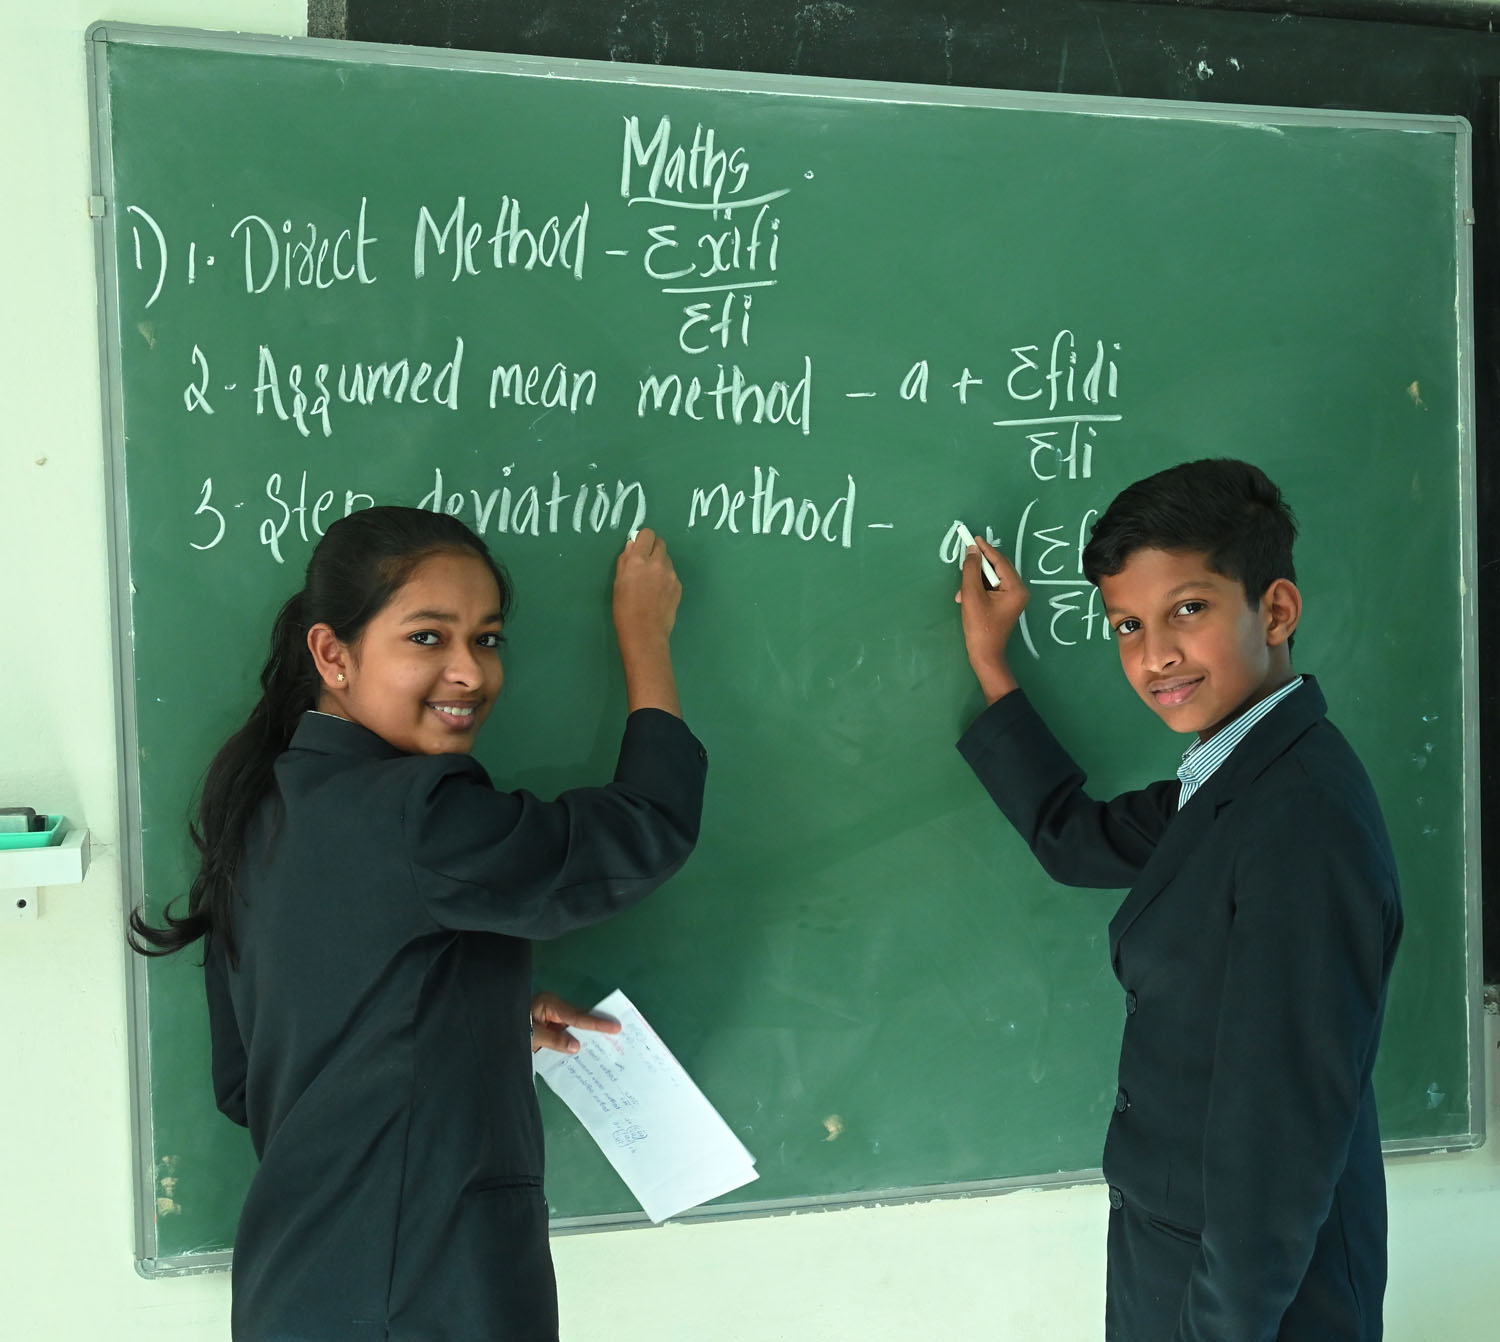 Maths
1) 1. Direct Method - Σxifi
Σfi
2. Assumed mean method - a + Σfidi
Σfi
3. Step deviation method - a + (Σf
Σf